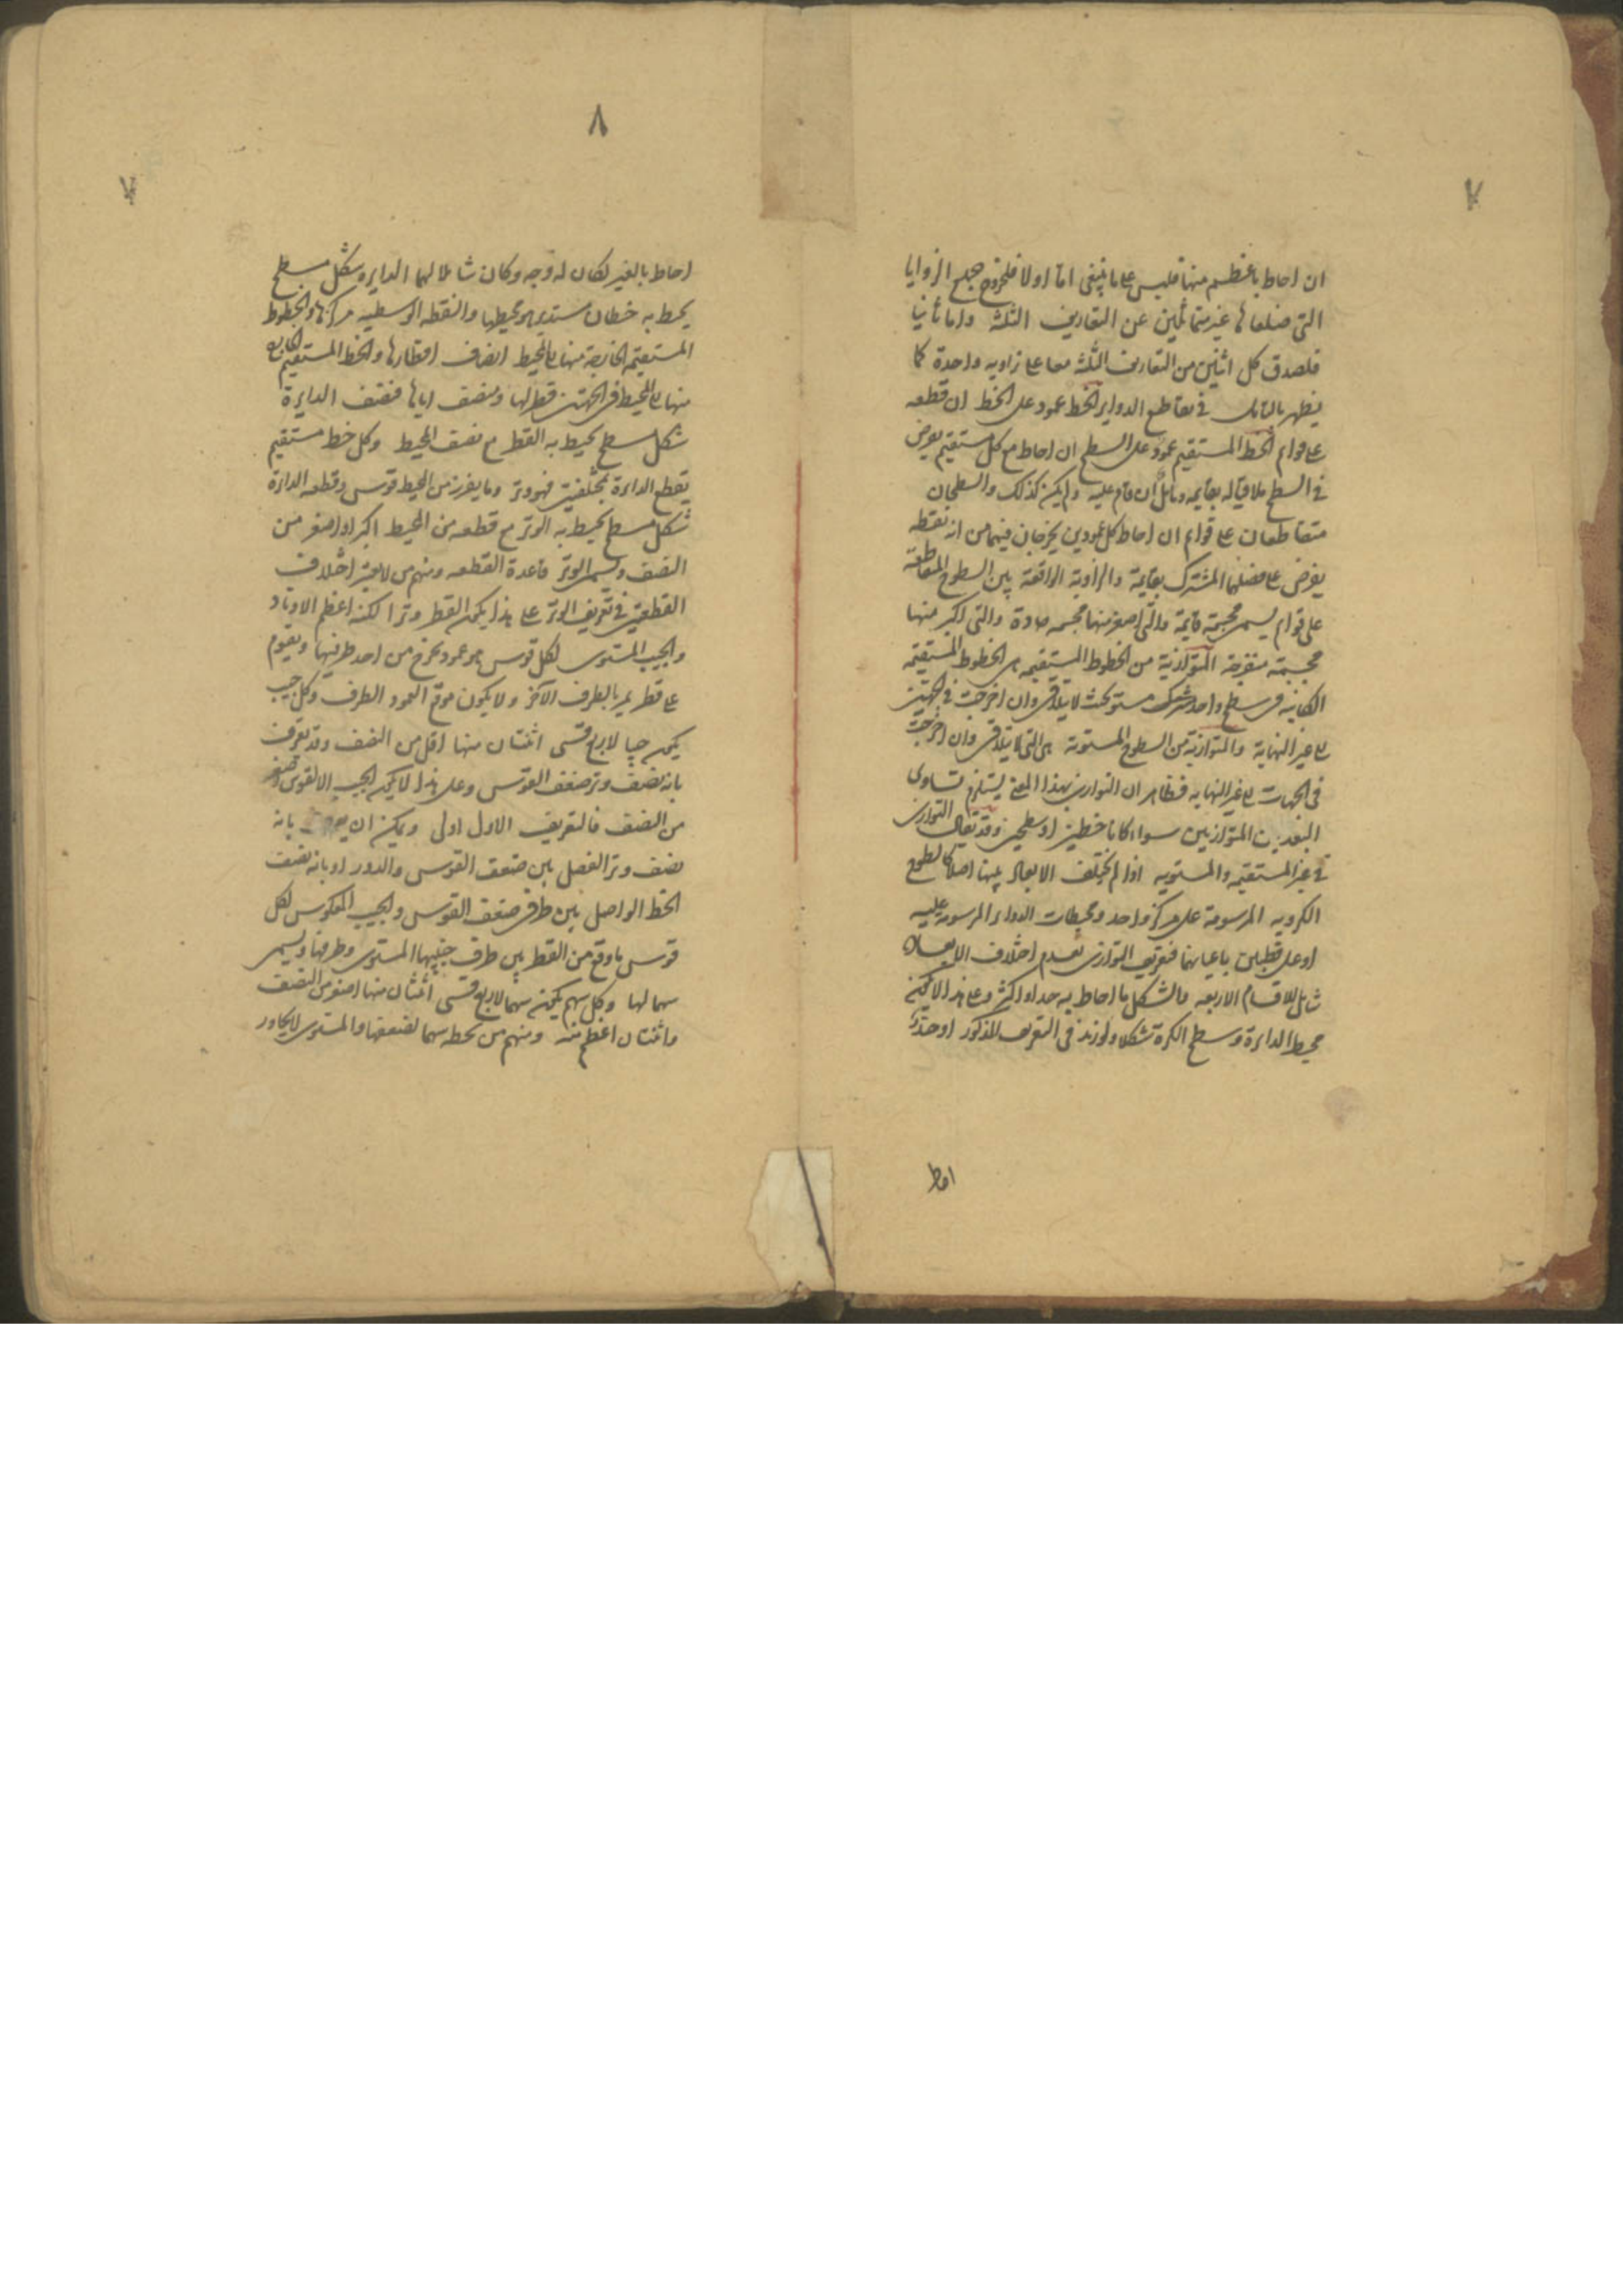 ان احاط باعظم منها فليس على ما ينبغى اما اولا فلخروج جميع الزوايا
التى ضلعاها غير متماثلين عن التعاريف الثلثة واما ثانيا
فلصدق كل اثنين من التعاريف الثلثة معا على زاويه واحدة كما
يظهر بالتامل فى تقاطع الدواير الخط عمود على الخط ان قطعه
على قوام الخط المستقيم عمود على السطح ان احاط مع كل مستقيم يفرض
فى السطح ملاقيا له بقايمه ومايل ان قام عليه ولم يكن كذلك والسطحان
متقاطعان على قوام ان احاط كل عمودين يخرجان فيهما من اية نقطه
يفرض على فصلهما المشترك بقايمة والزاوية الواقعة بين السطوح المتقاطعة
على قوام يسمى مجسمة قايمة والتى اصغر منها مجسمه حادة والتى اكبر منها
مجسمة منفرجة المتوازية من الخطوط المستقيمه هى الخطوط المستقيمه
الكائنه فى سطح واحد مستو بحيث لا يتلاقى وان اخرجت فى الجهتين
الى غير النهاية والمتوازية من السطوح المستوية هى التى لا يتلاقى وان اخرجت
فى الجهات الى غير النهايه فظاهر ان التوازى بهذا المعنى يستلزم تساوى
البعد بين المتوازيين سواء كانا خطين او سطحين وقد يقال التوازى
فى غير المستقيمه والمستويه اذا لم يختلف الابعاد بينها اصلا كالسطوح
الكرويه المرسومة على مركز واحد ومحيطات الدواير المرسومة عليه
او على قطبين باعيانهما فتعريف التوازى بعدم اختلاف الابعاد
شامل للاقسام الاربعه والشكل ما احاط به حد او اكثر وعلى هذا لا يكون
محيط الدائرة وسطح الكرة شكلا ولو زيد فى التعريف المذكور او حد
احاط
٨
احاط بالغير لكان له وجه وكان شاملا لهما الدايره شكل مسطح
يحيط به خط مستدير هو محيطها والنقطه الوسطيه مركزها والخطوط
المستقيمه الخارجة منها الى المحيط انصاف اقطارها والخط المستقيم الخارج
منها الى المحيط فى الجهتين قطر لها ومنصف اياها فنصف الدايرة
شكل مسطح يحيط به القطر مع نصف المحيط وكل خط مستقيم
يقطع الدائرة بمختلفين فهو وتر وما يفرز من المحيط قوس وقطعه الدائرة
شكل مسطح يحيط به الوتر مع قطعه من المحيط اكبر او اصغر من
النصف ويسمى الوتر قاعدة القطعه ومنهم من لا يعتبر اختلاف
القطعتين فى تعريف الوتر على هذا يكون القطر وترا لكنه اعظم الاوتار
والجيب المستوى لكل قوس هو عمود يخرج من احد طرفيها ويقوم
على قطر يمر بالطرف الآخر ولا يكون موقع العمود الطرف وكل جيب
يكون جيبا لاربع قسى اثنتان منها اقل من النصف وقد يعرف
بانه نصف وتر ضعف القوس وعلى هذا لا يكون الجيب الا لقوس اصغر
من النصف فالتعريف الاول اولى ويمكن ان بانه
نصف وتر الفضل بين ضعف القوس والدور او بانه نصف
الخط الواصل بين طرفى ضعف القوس والجيب المعكوس لكل
قوس ما وقع من القطر بين طرف جيبها المستوى وطرفها ويسمى
سهما لها وكل سهم يكون سهما لاربع قسى اثنتان منها اصغر من النصف
واثنتان اعظم منه ومنهم من يجعله سهما لضعفها والمستوى لا يجاوز